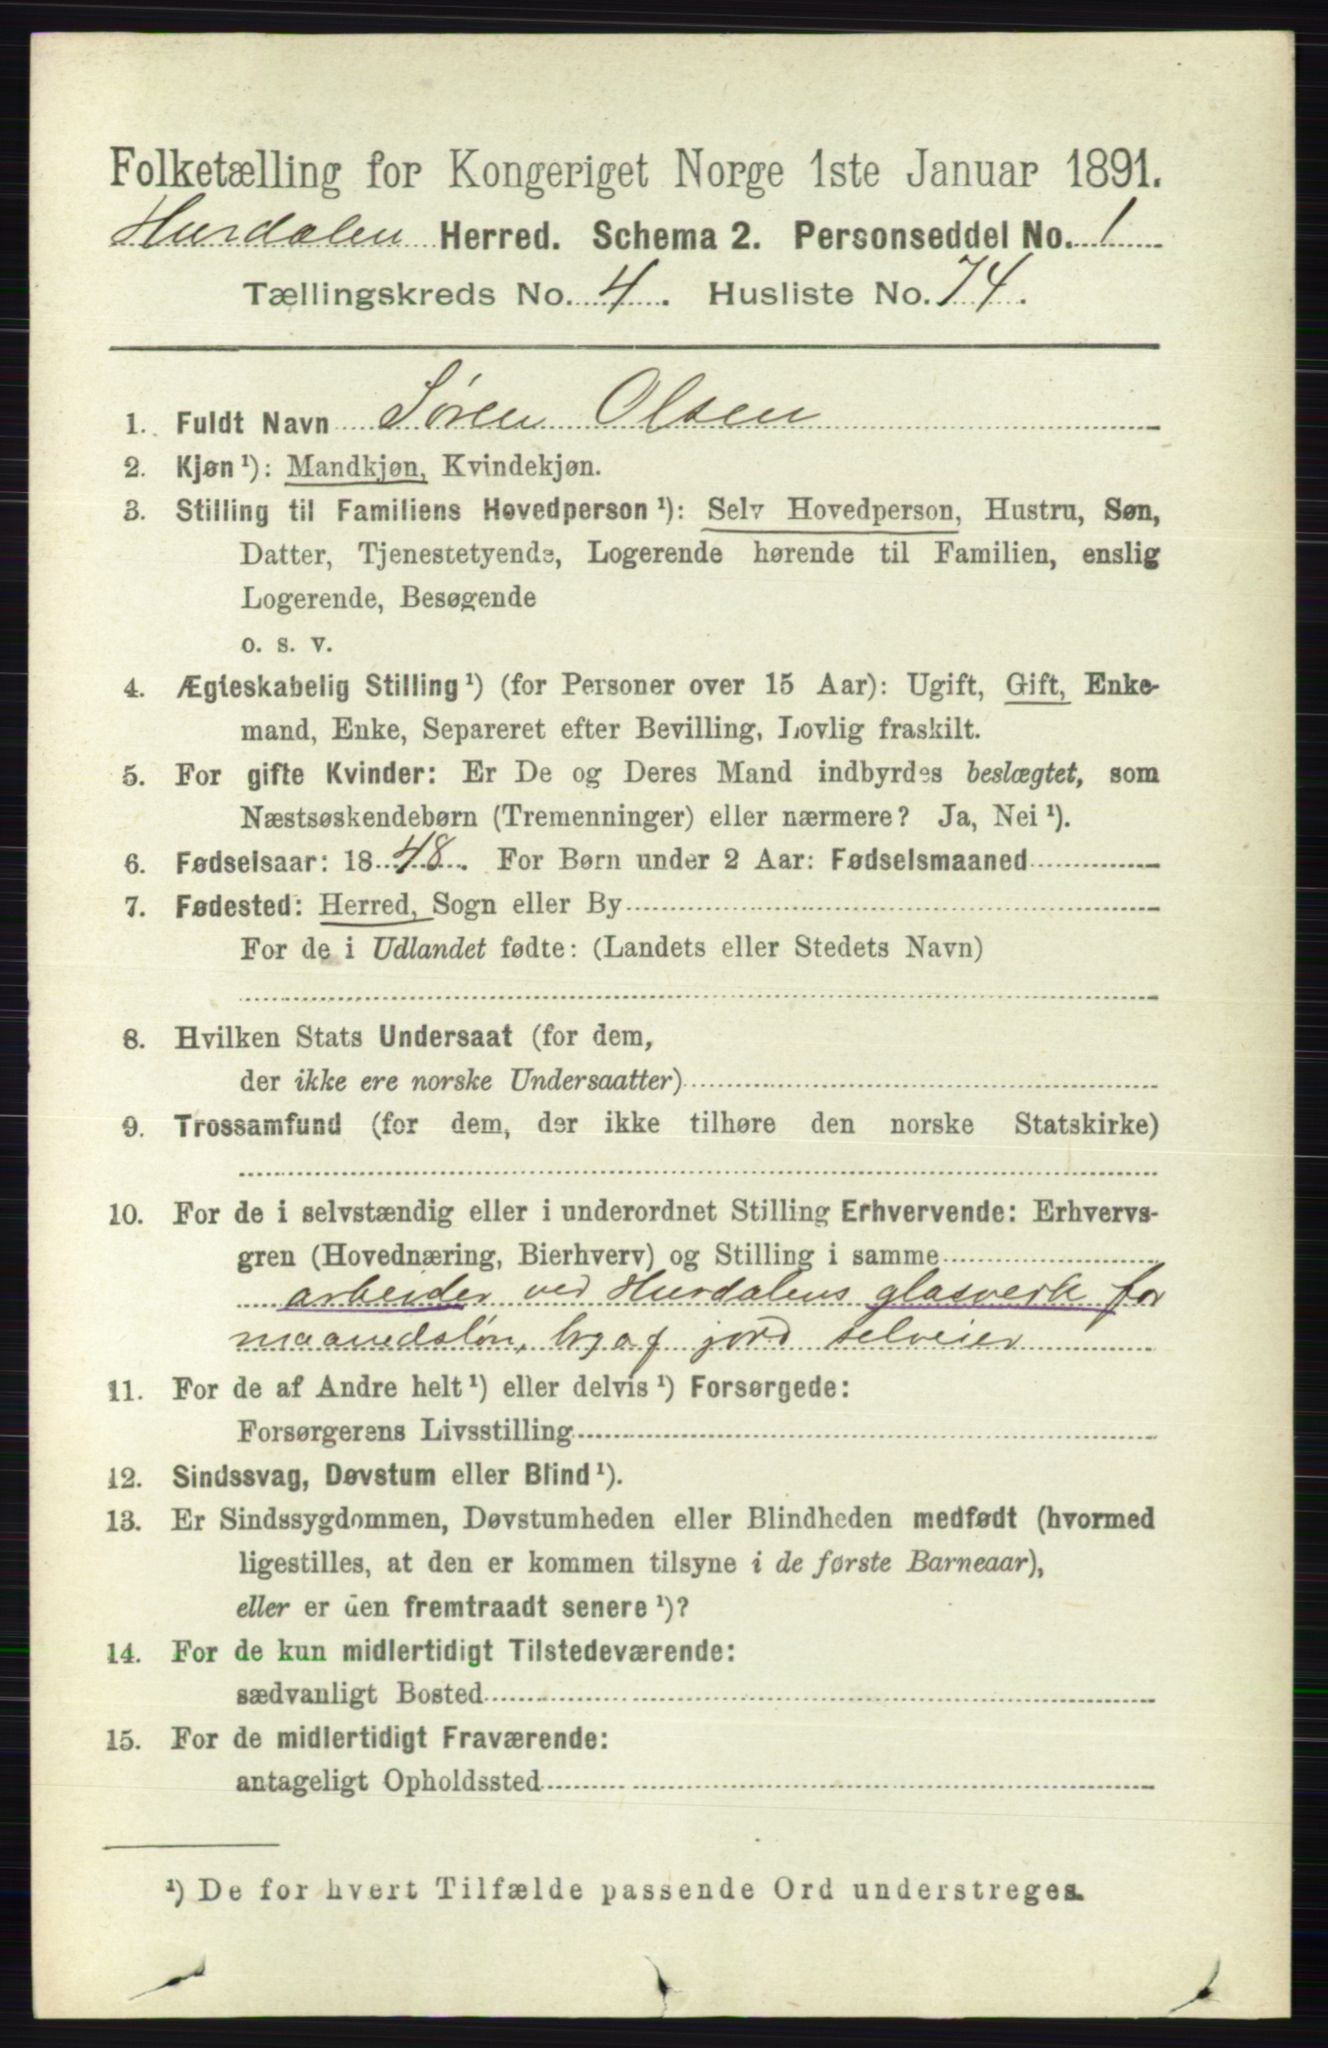 Folketælling for Kongeriget Norge 1ste Januar 1891.
Hurdalen Herred. Schema 2. Personseddel No. 1
Tællingskreds No. 4. Husliste No. 74.
1. Fuldt Navn Søren Olsen
2. Kjøn ¹): Mandkjøn, Kvindekjøn.
3. Stilling til Familiens Hovedperson ¹): Selv Hovedperson, Hustru, Søn,
Datter, Tjenestetyende, Logerende hørende til Familien, enslig
Logerende, Besøgende
o. s. v.
4. Ægteskabelig Stilling ¹) (for Personer over 15 Aar): Ugift, Gift, Enke-
mand, Enke, Separeret efter Bevilling, Lovlig fraskilt.
5. For gifte Kvinder: Er De og Deres Mand indbyrdes beslægtet, som
Næstsøskendebørn (Tremenninger) eller nærmere? Ja, Nei ¹).
6. Fødselsaar: 1848. For Børn under 2 Aar: Fødselsmaaned
7. Fødested: Herred, Sogn eller By
For de i Udlandet fødte: (Landets eller Stedets Navn)
8. Hvilken Stats Undersaat (for dem,
der ikke ere norske Undersaatter)
9. Trossamfund (for dem, der ikke tilhøre den norske Statskirke)
10. For de i selvstændig eller i underordnet Stilling Erhvervende: Erhvervs-
gren (Hovednæring, Bierhverv) og Stilling i samme
arbeider ved Hurdalens glasverk for
maanedsløn, brg af jord selveier
11. For de af Andre helt ¹) eller delvis ¹) Forsørgede:
Forsørgerens Livsstilling
12. Sindssvag, Døvstum eller Blind ¹).
13. Er Sindssygdommen, Døvstumheden eller Blindheden medfødt (hvormed
ligestilles, at den er kommen tilsyne i de første Barneaar),
eller er den fremtraadt senere ¹)?
14. For de kun midlertidigt Tilstedeværende:
sædvanligt Bosted
15. For de midlertidigt Fraværende:
antageligt Opholdssted
¹) De for hvert Tilfælde passende Ord understreges.